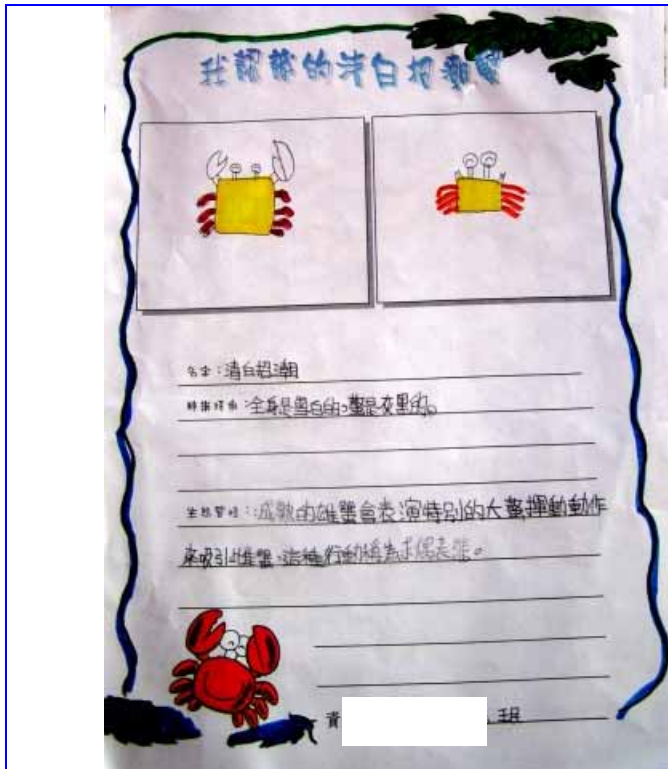 我認識的清白招潮蟹
名字：清白招潮
特徵：全身是雪白的。螯是麥黑的。
生態習性：成熟的雄蟹會表演特別的大螯揮動動作
來吸引雌蟹，這種行動稱為求偶表演。
資
珉